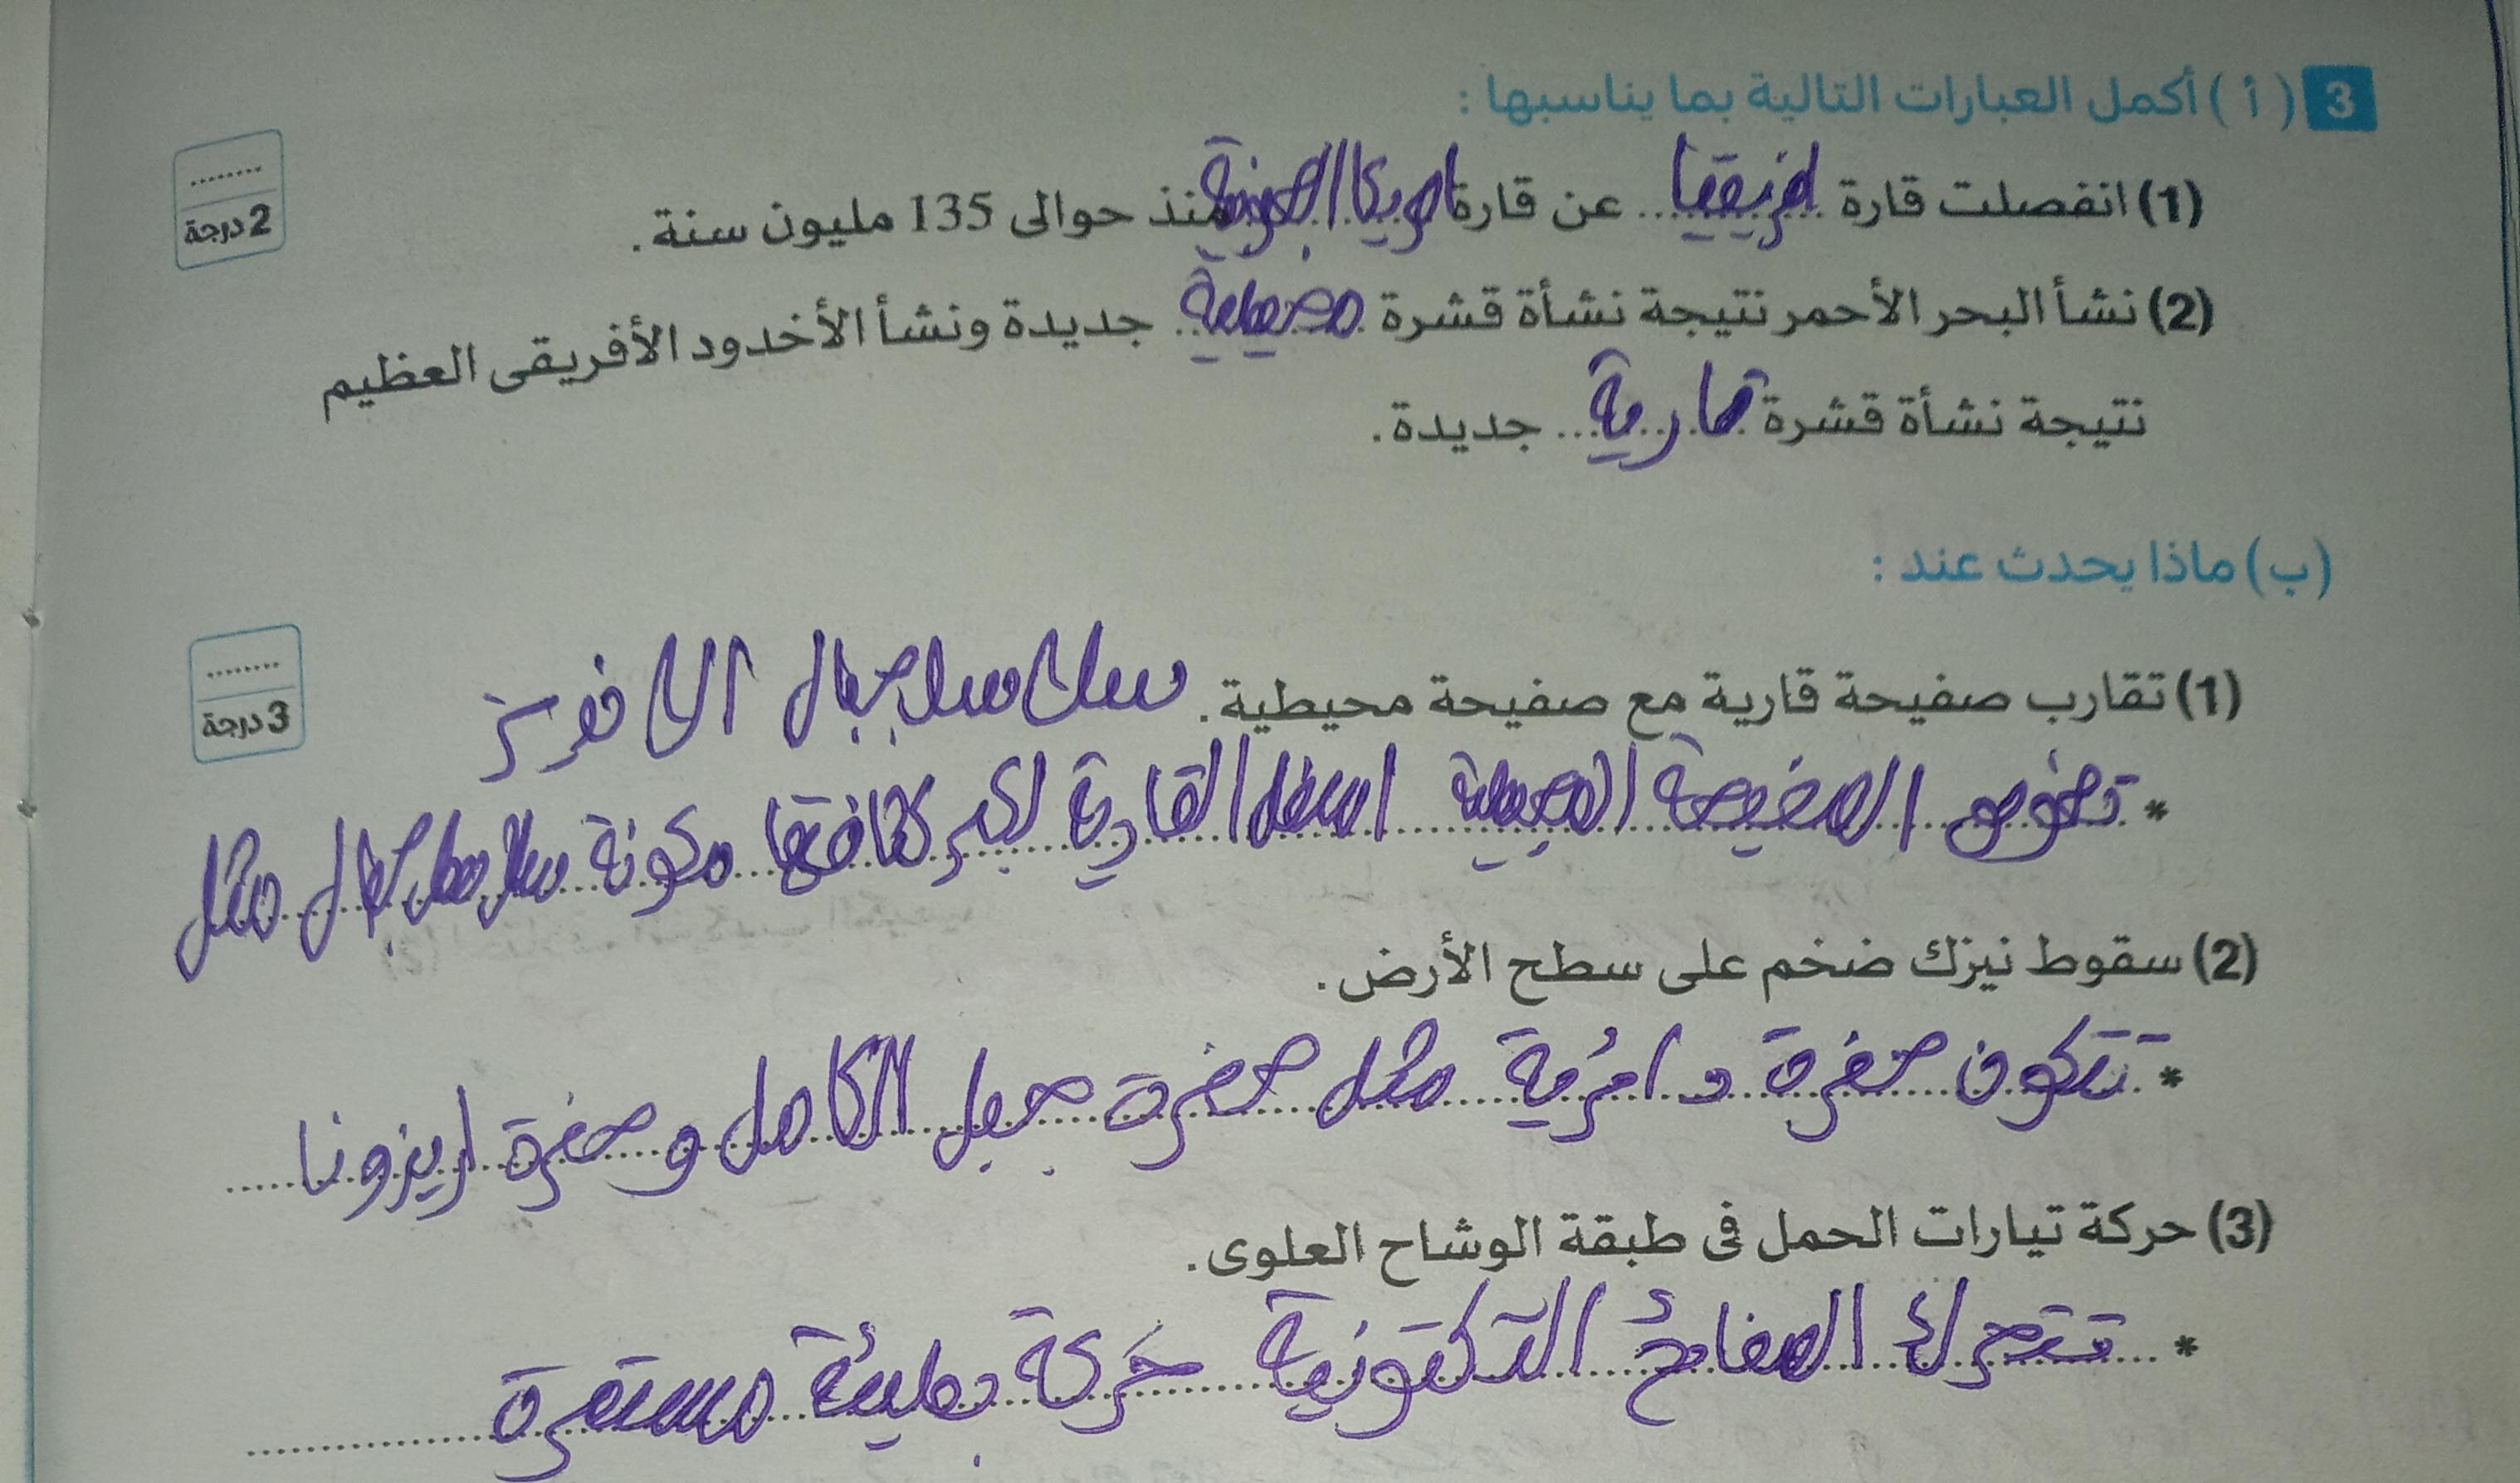 3 ( أ ) أكمل العبارات التالية بما يناسبها :
(1) انفصلت قارة افريقيا عن قارة امريكا الجنوبية منذ حوالى 135 مليون سنة.
........ 2 درجة
(2) نشأ البحر الأحمر نتيجة نشأة قشرة محيطية جديدة ونشأ الأخدود الأفريقى العظيم
نتيجة نشأة قشرة قارية جديدة.
(ب) ماذا يحدث عند :
(1) تقارب صفيحة قارية مع صفيحة محيطية. سلاسل جبال الانديز
........ 3 درجة
* تغوص الصفيحة المحيطية اسفل القارية لكبر كثافتها مكونة سلاسل جبال مثل
(2) سقوط نيزك ضخم على سطح الأرض.
* تتكون حفرة دائرية مثل حفرة جبل الكامل وحفرة اريزونا
(3) حركة تيارات الحمل فى طبقة الوشاح العلوى.
* تتحرك الصفائح التكتونية حركة بطيئة مستمرة